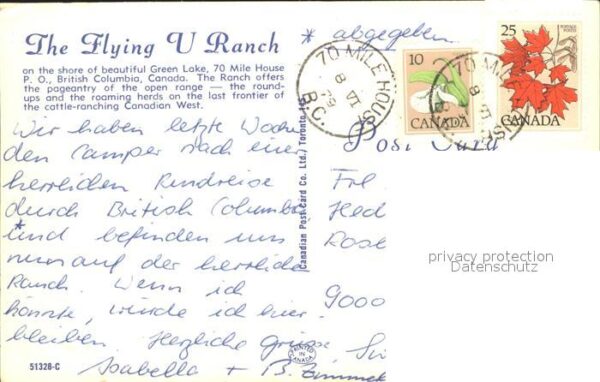 The Flying U Ranch
on the shore of beautiful Green Lake, 70 Mile House
P. O., British Columbia, Canada. The Ranch offers
the pageantry of the open range — the round-
ups and the roaming herds on the last frontier of
the cattle-ranching Canadian West.
* abgegeben
70 MILE HOUSE
8
VI
79
B.C.
10
CANADA
25
POSTAGE POSTES
CANADA
Post Card
Wir haben letzte Woche
den Camper nach einer
herrlichen Rundreise
durch British Columbia
*und befinden uns
nun auf der herrlichen
Ranch. Wenn ich
könnte, würde ich hier
bleiben. Herzliche Grüsse,
Isabella + B. Zimmer
Frl
Hed
Rose
9000
Canadian Post Card Co. Ltd./ Toronto
PRINTED IN CANADA
51328-C
privacy protection
Datenschutz